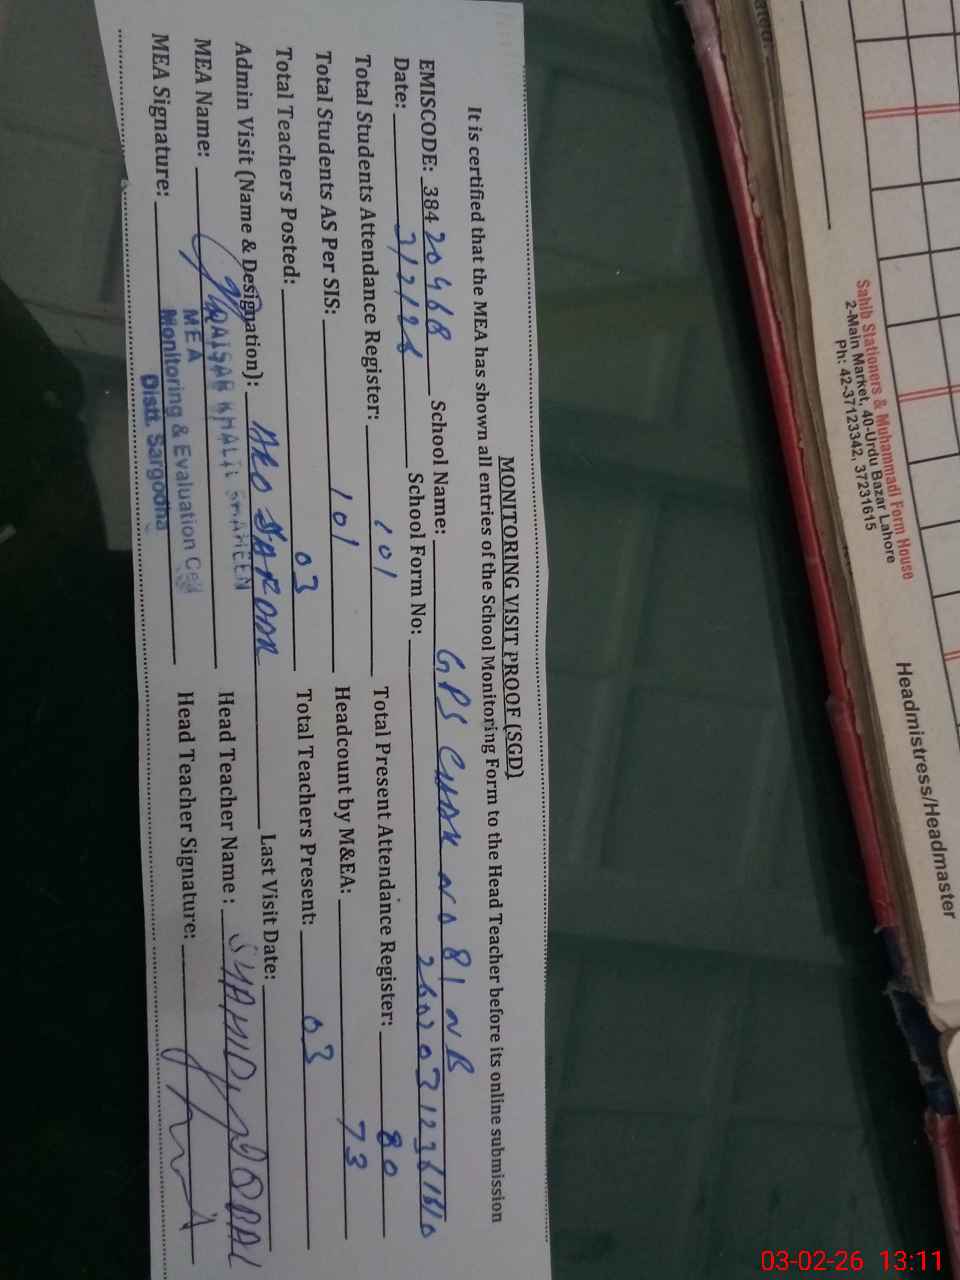 MONITORING VISIT PROOF (SGD)
It is certified that the MEA has shown all entries of the School Monitoring Form to the Head Teacher before its online submission
EMISCODE: 38420468 School Name: GPS CHAK NO 81 NB
Date: 3/2/26 School Form No:
Total Students Attendance Register: 101 Total Present Attendance Register: 80
Total Students AS Per SIS: 101 Headcount by M&EA: 73
Total Teachers Posted: 03 Total Teachers Present: 03
Admin Visit (Name & Designation): Last Visit Date:
MEA Name: QAISAR KHALIL SHAHEEN Head Teacher Name : SHAHID IQBAL
MEA Signature: Head Teacher Signature:
MEA
Monitoring & Evaluation Cell
Distt. Sargodha
Sahib Stationers & Muhammadi Form House
2-Main Market, 40-Urdu Bazar Lahore
Ph: 42-37123342, 37231615
Headmistress/Headmaster
03-02-26 13:11